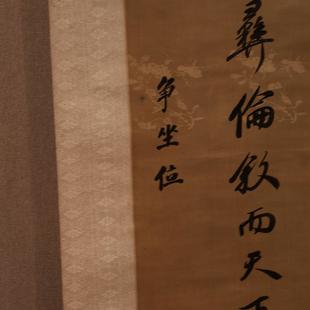 彝倫敘而天下
争坐位